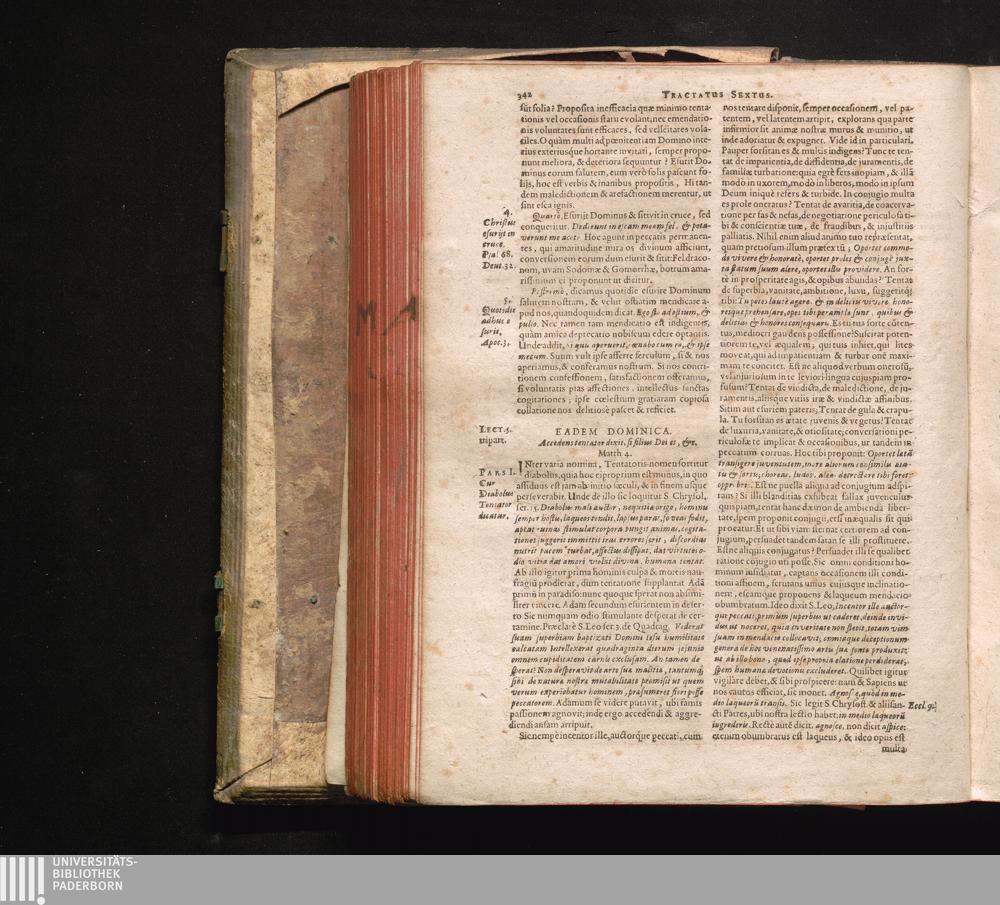 342
TRACTATUS SEXTUS.
sūt folia? Proposita inefficacia quæ minimo tenta-
tionis vel occasionis flatu evolant; nec emendatio-
nis voluntates sunt efficaces, sed velleitates vola-
tiles. O quàm multi ad pœnitentiam Domino inte-
rius exteriusque hortante invitati, semper propo-
nunt meliora, & deteriora sequuntur? Esurit Do-
minus eorum salutem, eum verò solis pascunt fo-
lijs, hoc est verbis & inanibus propositis, Hi tan-
dem maledictionem & arefactionem merentur, ut
sint esca ignis.
4.
Christus
esurijt in
cruce.
Psal. 68.
Deut. 32.
Quartò, Esurijt Dominus & sitivit in cruce, sed
conqueritur. Dederunt in escam meam fel, & pota-
verunt me aceto. Hoc agunt in peccatis permanen-
tes, qui amaritudine mira os divinum afficiunt,
conversionem eorum dum esurit & sitit: Fel draco-
num, uvam Sodomæ & Gomorrhæ, botrum ama-
rissimum ei proponunt ut dicitur.
5.
Quotidie
adhuc e
surit.
Apoc. 3.
Postremò, dicamus quotidie esurire Dominum
salutem nostram, & velut ostiatim mendicare a-
pud nos, quando quidem dicat. Ego sto ad ostium, &
pulso. Nec tamen tam mendicatio est indigentis,
quàm amica deprecatio nobiscum edere optantis.
Unde addit, si quis aperuerit, cœnabo cum eo, & ipse
mecum. Suum vult ipse afferre ferculum, si & nos
aperiamus, & conferamus nostrum. Si nos contri-
tionem confessionem, satisfactionem offeramus,
si voluntatis pias affectiones, intellectus sanctas
cogitationes; ipse cœlestium gratiarum copiosa
collatione nos delitiosè pascet & reficiet.
LECT. 5.
tripart.
EADEM DOMINICA.
Accedens tentator dixit. si filius Dei es, &c.
Matth 4.
PARS I.
Cur
Diabolus
Tentator
dicatur.
INter varia nomina, Tentatoris nomen sortitur
diabolus, quia hoc ei proprium est munus, in quo
assiduus est jam ab initio sæculi, & in finem usque
perseverabit. Unde de illo sic loquitur S. Chrysol,
ser. 15. Diabolus mali auctor, nequitiæ origo, hominū
semper hostis, laqueos tendit, lapsus parat, foveas fodit,
aptat ruinas stimulat corpora pungit animas, cogita-
tiones suggerit immittit iras errores serit, discordias
nutrit pacem turbat, affectus dissipat, dat virtutes o-
dio vitia dat amori violat divina, humana tentat.
Ab illo igitur prima hominis culpa & mortis nau-
fragiū prodierat, dum tentatione supplantat Adā
primū in paradiso: nunc quoque sperat non absimi-
liter vincere Adam secundum esurientem in deser-
to Sic numquam odio stimulante desperat de cer-
tamine. Præclarè S. Leo ser 3. de Quadrag, Viderat
suam superbiam baptizati Domini Iesu humilitate
calcatam Intellexerat quadraginta dierum jejunio
omnem cupiditatem carnis exclusam. An tamen de
sperat? Non desperavit de arte sua malitia, tantumq;
sibi de natura nostra mutabilitate promisit ut quem
verum experiebatur hominem, præsumeret fieri posse
peccatorem. Adamum se videre putavit, ubi famis
passionem agnovit; inde ergo accedendi & aggre-
diendi ansam arripuit.
Sic nempè incentor ille, auctorque peccati, cum
nos tentare disponit, semper occasionem, vel pa-
tentem, vel latentem arripit, explorans qua parte
infirmior sit animæ nostræ murus & munitio, ut
inde adoriatur & expugnet. Vide id in particulari.
Pauper forsitan es & multis indigens? Tunc te ten-
tat de impatientia, de diffidentia, de juramentis, de
familiæ turbatione: quia ægrè fers inopiam, & illā
modò in uxorem, modò in liberos, modò in ipsum
Deum iniquè refers & turbide. In conjugio multa
es prole oneratus? Tentat de avaritia, de coacerva-
tione per fas & nefas, de negotiatione periculosa ti-
bi & conscientiæ tuæ, de fraudibus, & injustitiis
palliatis. Nihil enim aliud animo tuo repræsentat,
quam pretiosum illum prætextū; Oportet commo-
de vivere & honoratè, oportet proles & conjugē jux-
ta statum suum alere, oportet illis providere. An for-
tè in prosperitate agis, & opibus abundas? Tentat
de superbia, vanitate, ambitione, luxu, suggeritq;
tibi: Tu potes lautè agere, & in deliciis vivere. hono-
resque prehensare, opes tibi per amplæ sunt, quibus &
delicias & honores consequaris. Es tu tua sorte cōten-
tus, mediocri gaudens possessione? Suscitat poten-
tiorem te, vel æqualem; qui tuis inhiet, qui lites
moveat, qui ad impatientiam & turbationē maxi-
mam te concitet. Est ne aliquod verbum onerosū,
vel injuriosum in te leviori lingua cujuspiam pro-
fusum? Tentat de vindicta, de maledictione, de ju-
ramentis, aliisque vitiis iræ & vindictæ affinibus.
Sitim aut esuriem pateris; Tentat de gula & crapu-
la. Tu forsitan es ætate juvenis & vegetus? Tentat
de luxuria, vanitate, & otiositate; conversationi pe-
riculosæ te implicat & occasionibus, ut tandem in
peccatum corruas. Hoc tibi proponit: Oportet lætā
transigere juventutem, more aliorum consimilis æta-
tis & sortis; choreas, ludos, aleā detrectare tibi foret
opprobrio. Est ne puella aliqua ad conjugium adspi-
rans? Si illi blanditias exhibeat fallax juvenculus
quispiam, tentat hanc dæmon de ambienda liber-
tate, spem proponit conjugii, etsi inæqualis sit qui
procatur. Et ut sibi viam sternat certiorem ad con-
jugium, persuadet tandem satan se illi prostituere.
Estne aliquis conjugatus? Persuadet illi se qualibet
ratione cōjugio uti posse. Sic omni conditioni ho-
minum insidiatur, captans occasionem illi condi-
tioni affinem, scrutans unius cujusque inclinatio-
nem; escamque proponens & laqueum mendacio
obumbratum. Ideo dixit S. Leo, Incentor ille auctor-
que peccati, primùm superbus ut caderet, deinde invi-
dus ut noceret, quia in veritate non stetit, totam vim
suam in mendacio collocavit; omniaque deceptionum
genera de hoc venenatissimo artis suæ fonte produxit;
ut ab illo bono, quod ipse propria elatione perdiderat,
spem humanæ devotionis excluderet. Quilibet igitur
vigilare debet, & sibi prospicere: nam & Sapiens ut
nos cautos efficiat, sic monet. Agnosce, quòd in me-
dio laqueorū transis. Sic legit S. Chrysost. & alii san-
Eccl. 9.
cti Patres, ubi nostra lectio habet: in medio laqueorū
ingredieris. Rectè autē dicit. agnosce. non dicit aspice:
etenim obumbratus est laqueus, & ideo opus est
multa
M A
UNIVERSITÄTS-
BIBLIOTHEK
PADERBORN